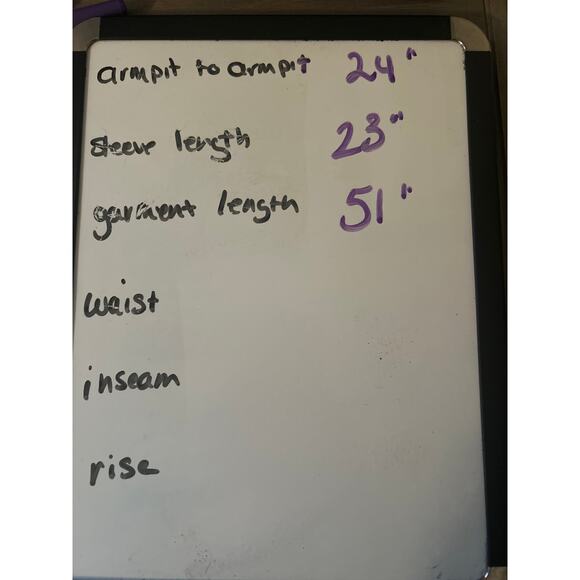 armpit to armpit 24"
sleeve length 23"
garment length 51"
waist
inseam
rise